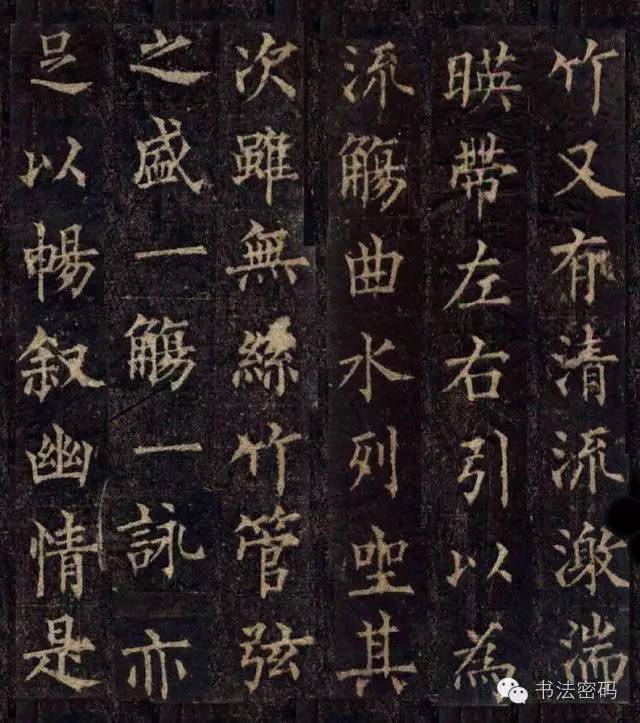 竹又有清流激湍
暎帶左右引以為
流觴曲水列坐其
次雖無絲竹管弦
之盛一觴一詠亦
足以暢叙幽情是
书法密码